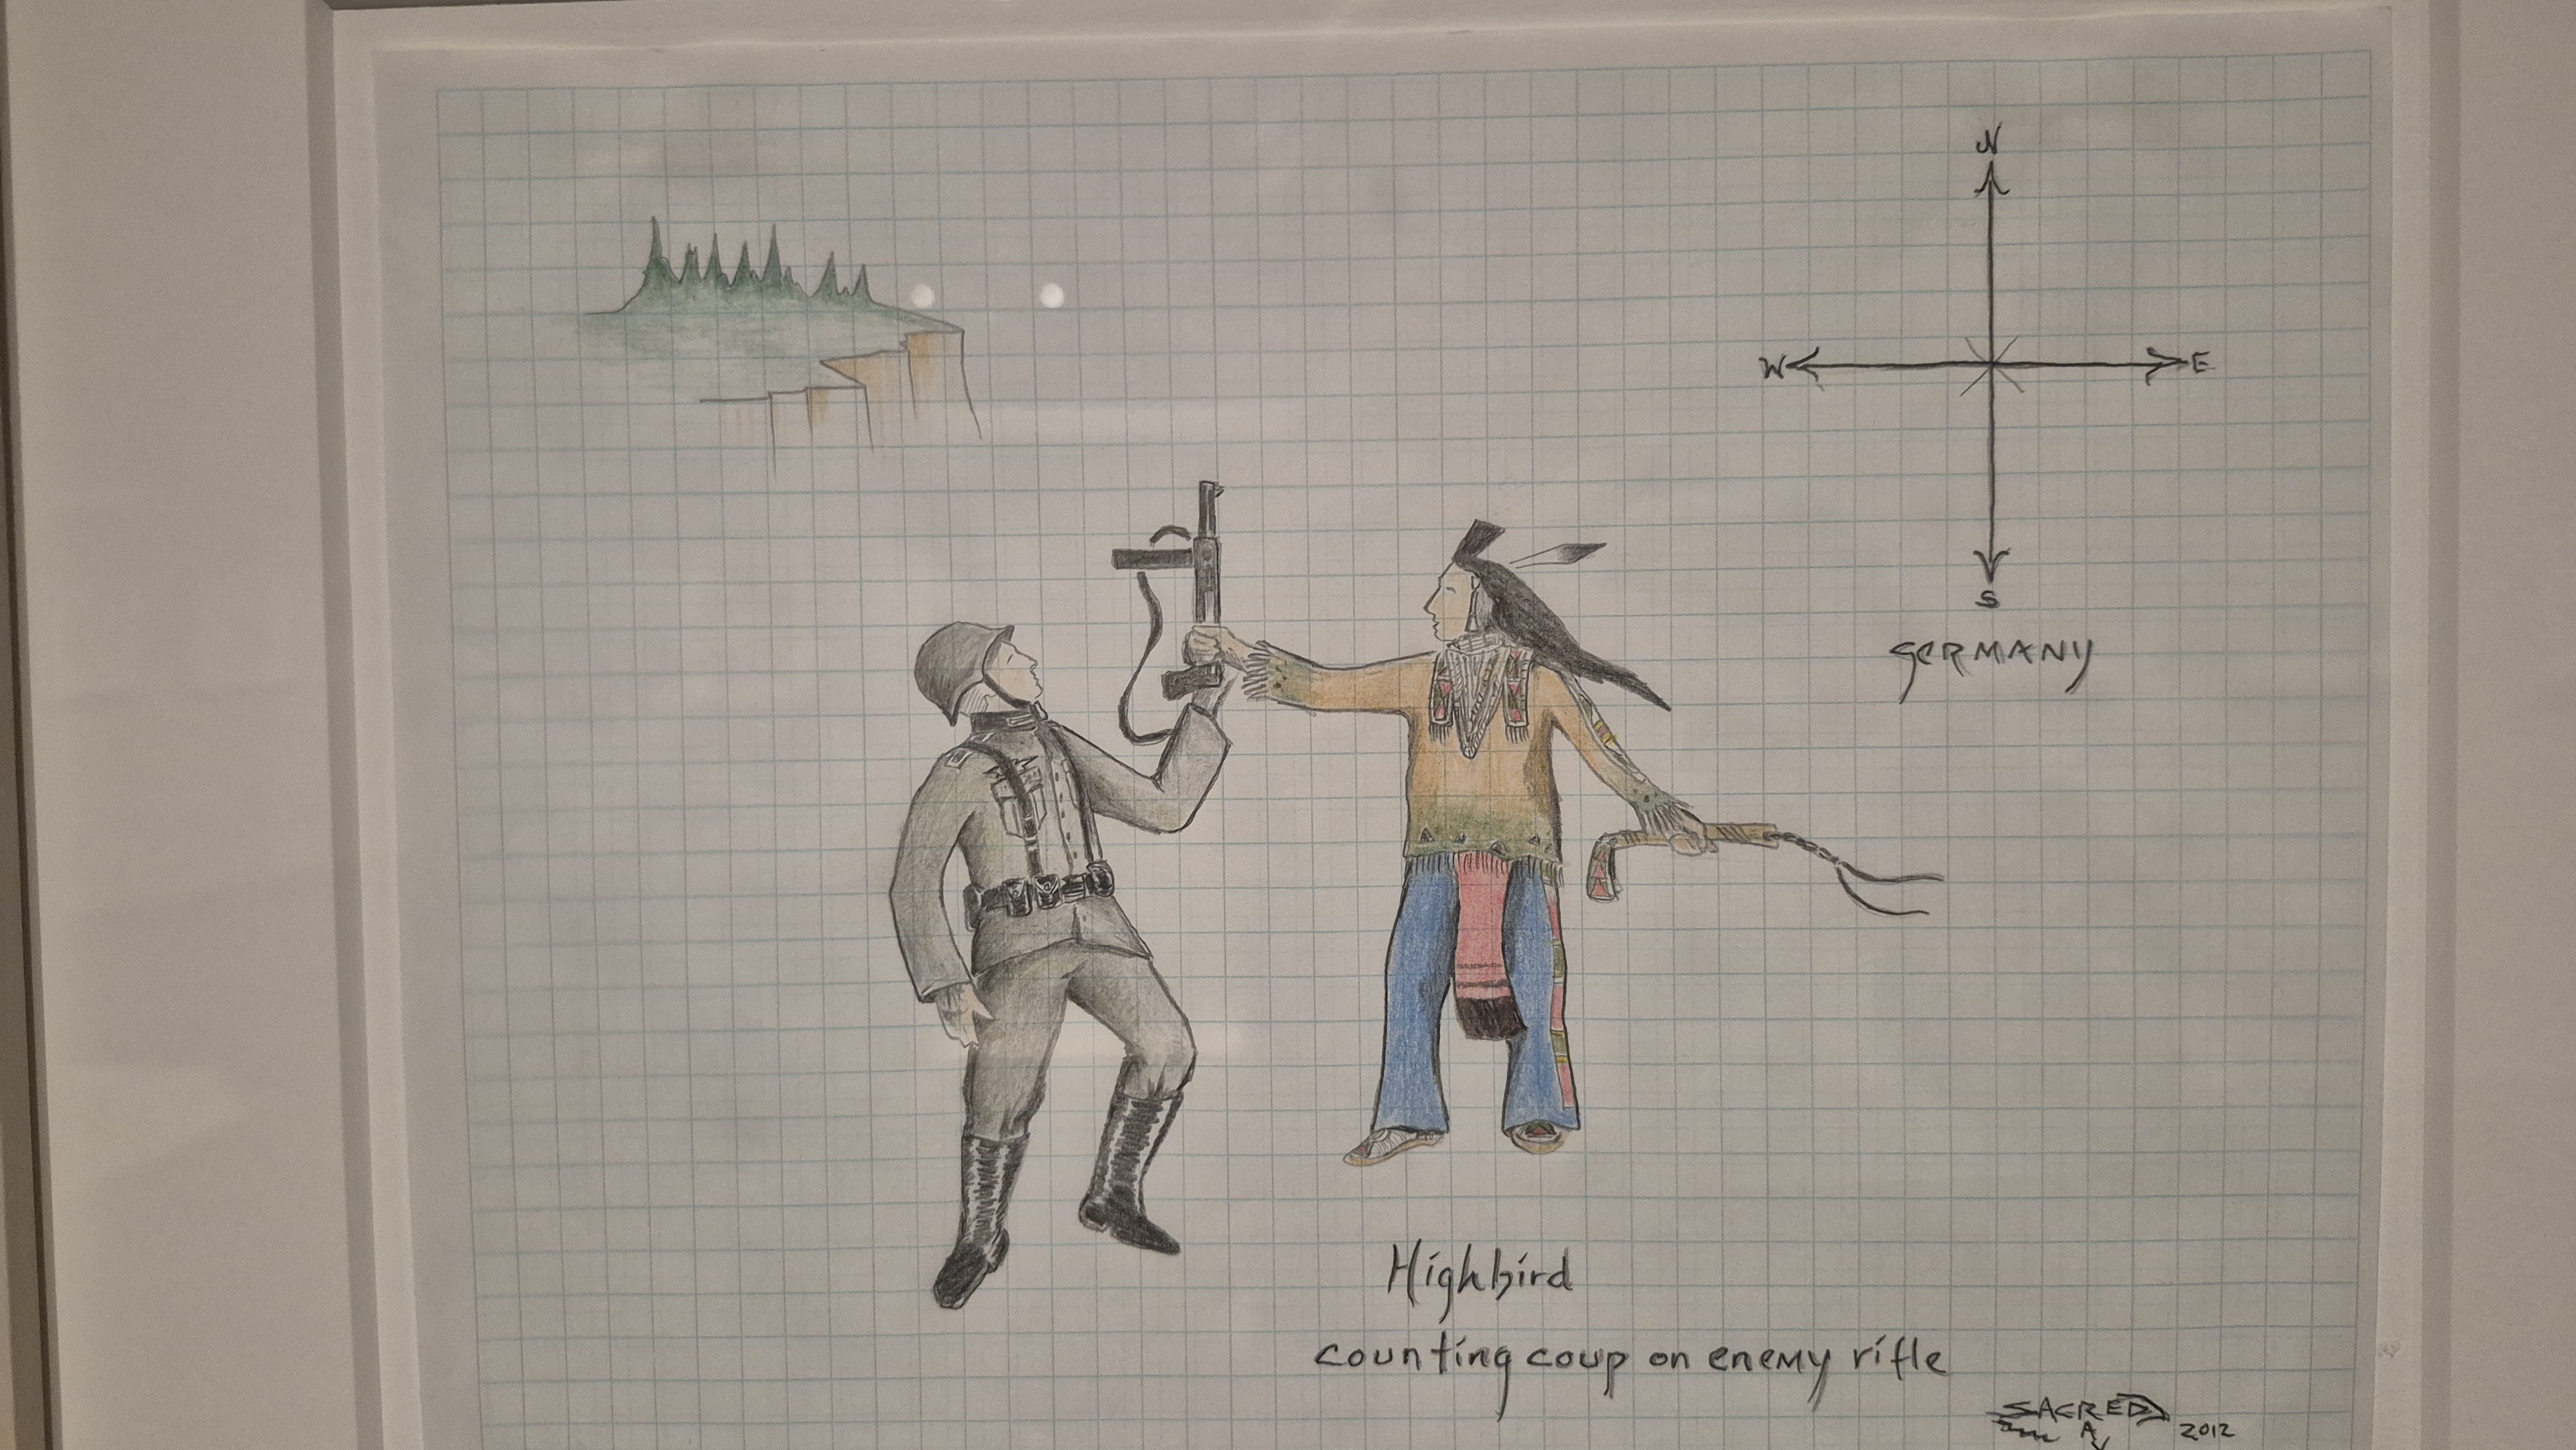 N
W E
S
GERMANY
Highbird
counting coup on enemy rifle
SACRED
2012